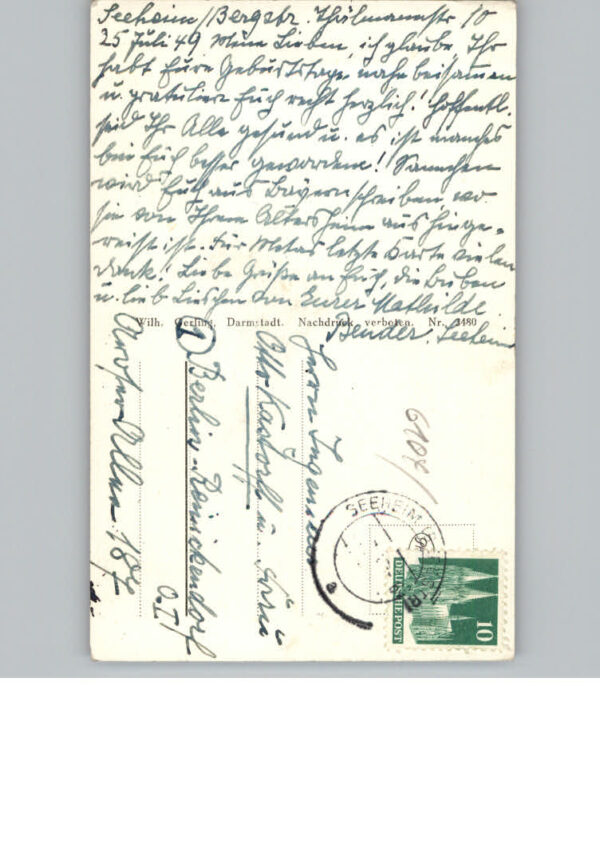 Seeheim/Bergstr. Thälmannstr 10
25 Juli 49 Meine Lieben, ich glaube Ihr
habt Eure Geburtstage nahe beisammen
u. gratuliere Euch recht herzlich! Hoffentl.
seid Ihr Alle gesund u. es ist manches
bei Euch besser geworden!
wird Euch aus Bayern schreiben, wo
sie von Ihrem Altersheim aus hinge-
reist ist. Für Metas letzte Karte vielen
Dank! Liebe Grüße an Euch, die Buben
u. lieb Lieschen von Eurer Mathilde
Bender. Seeheim
Wilh. Gerling, Darmstadt. Nachdruck verboten. Nr. 2480
Herrn Ingenieur
Otto u. Frau
1 Berlin-Reinickendorf
O. I
Aroser Allee 187
6104/
SEEHEIM
DEUTSCHE POST
10